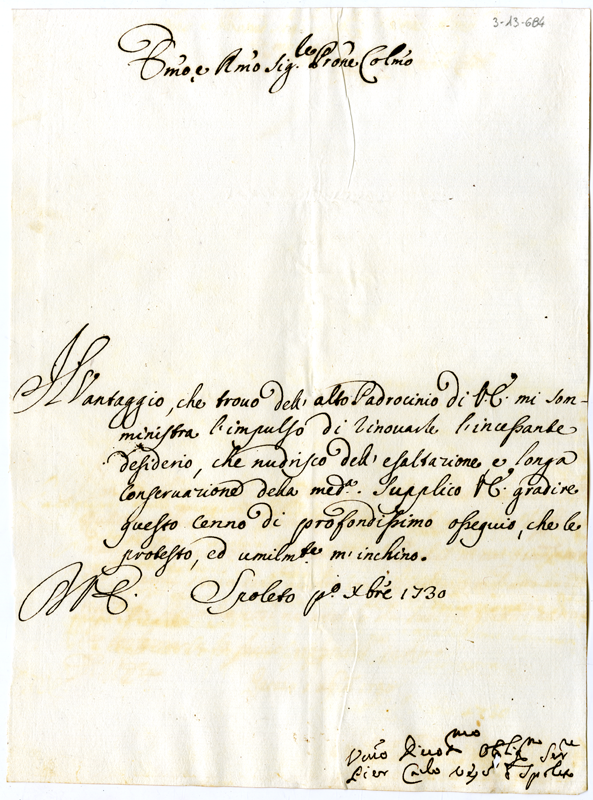 3-13-684
Emo, e Rmo Sig.re Prone Colmo
Il Vantaggio, che trovo dell' alto Padrocinio di V.E. mi som-
ministra l'impulso di rinovarle l'incessante
desiderio, che nudrisco dell' esaltazione, e longa
conservazione della meda. Supplico V.E. gradire
questo cenno di profondissimo ossequio, che le
protesto, ed umilmte m'inchino.
D V.E. Spoleto po Xbre 1730
Umo Divotmo Obligmo Serre
Pier Carlo Spoleto